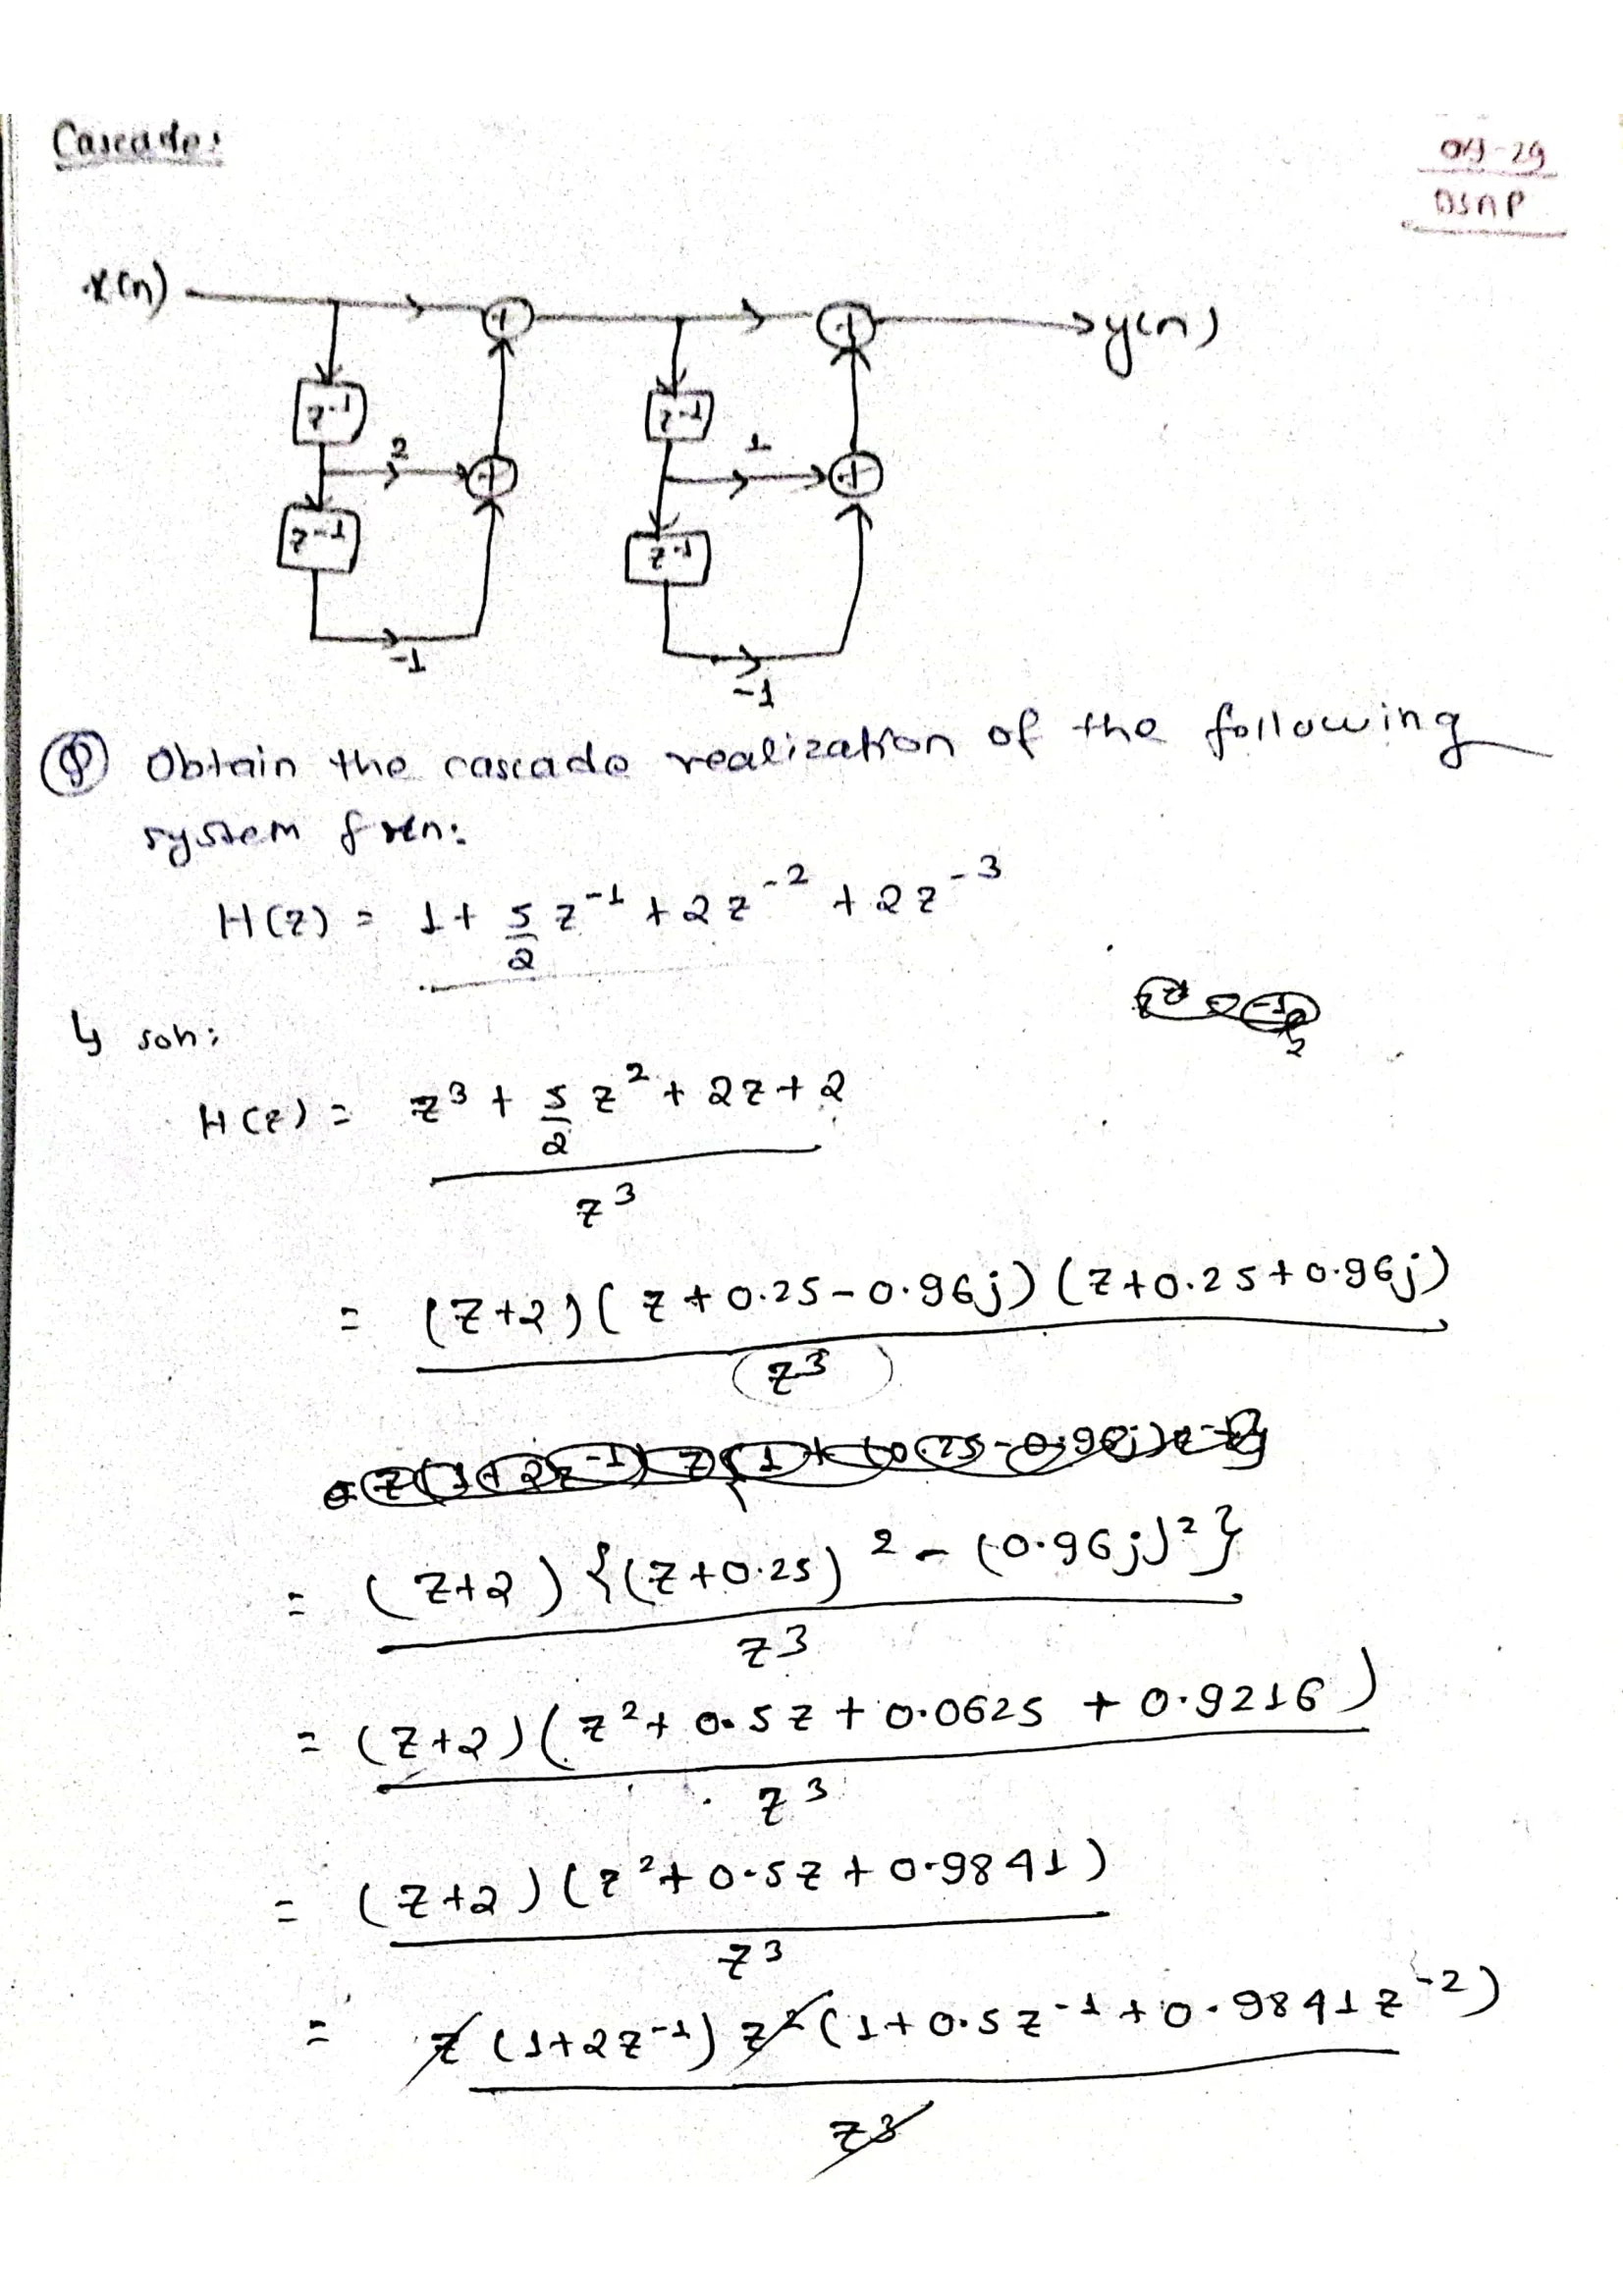 Cascade:
04-29
DSAP
x(n)
+
+
y(n)
z-1
z-1
2
+
1
+
z-1
z-1
-1
-1
Q Obtain the cascade realization of the following
system fxn:
H(z) = 1 + 5/2 z^-1 + 2z^-2 + 2z^-3
↳ soln:
H(z) = z^3 + 5/2 z^2 + 2z + 2
z^3
= (z+2)(z+0.25-0.96j)(z+0.25+0.96j)
z^3
= (z+2){(z+0.25)^2 - (0.96j)^2}
z^3
= (z+2)(z^2+0.5z+0.0625 + 0.9216)
z^3
= (z+2)(z^2+0.5z+0.9841)
z^3
= z(1+2z^-1) z^2(1+0.5z^-1+0.9841z^-2)
z^3